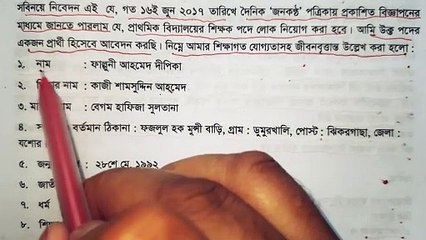 সবিনয়ে নিবেদন এই যে, গত ১৬ই জুন ২০১৭ তারিখে দৈনিক 'জনকণ্ঠ' পত্রিকায় প্রকাশিত বিজ্ঞাপনের
মাধ্যমে জানতে পারলাম যে, প্রাথমিক বিদ্যালয়ের শিক্ষক পদে লোক নিয়োগ করা হবে। আমি উক্ত পদের
একজন প্রার্থী হিসেবে আবেদন করছি। নিম্নে আমার শিক্ষাগত যোগ্যতাসহ জীবনবৃত্তান্ত উল্লেখ করা হলো :
১. নাম : ফাল্গুনী আহমেদ দীপিকা
২. নাম : কাজী শামসুদ্দিন আহমেদ
৩. : বেগম হাফিজা সুলতানা
৪. বর্তমান ঠিকানা : ফজলুল হক মুন্সী বাড়ি, গ্রাম : ডুমুরখালি, পোস্ট : ঝিকরগাছা, জেলা :
যশোর
৫. : ২৮শে মে, ১৯৯২
৬.
৭. ধর্ম
৮.